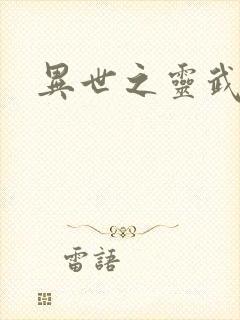 異世之靈武
雷語